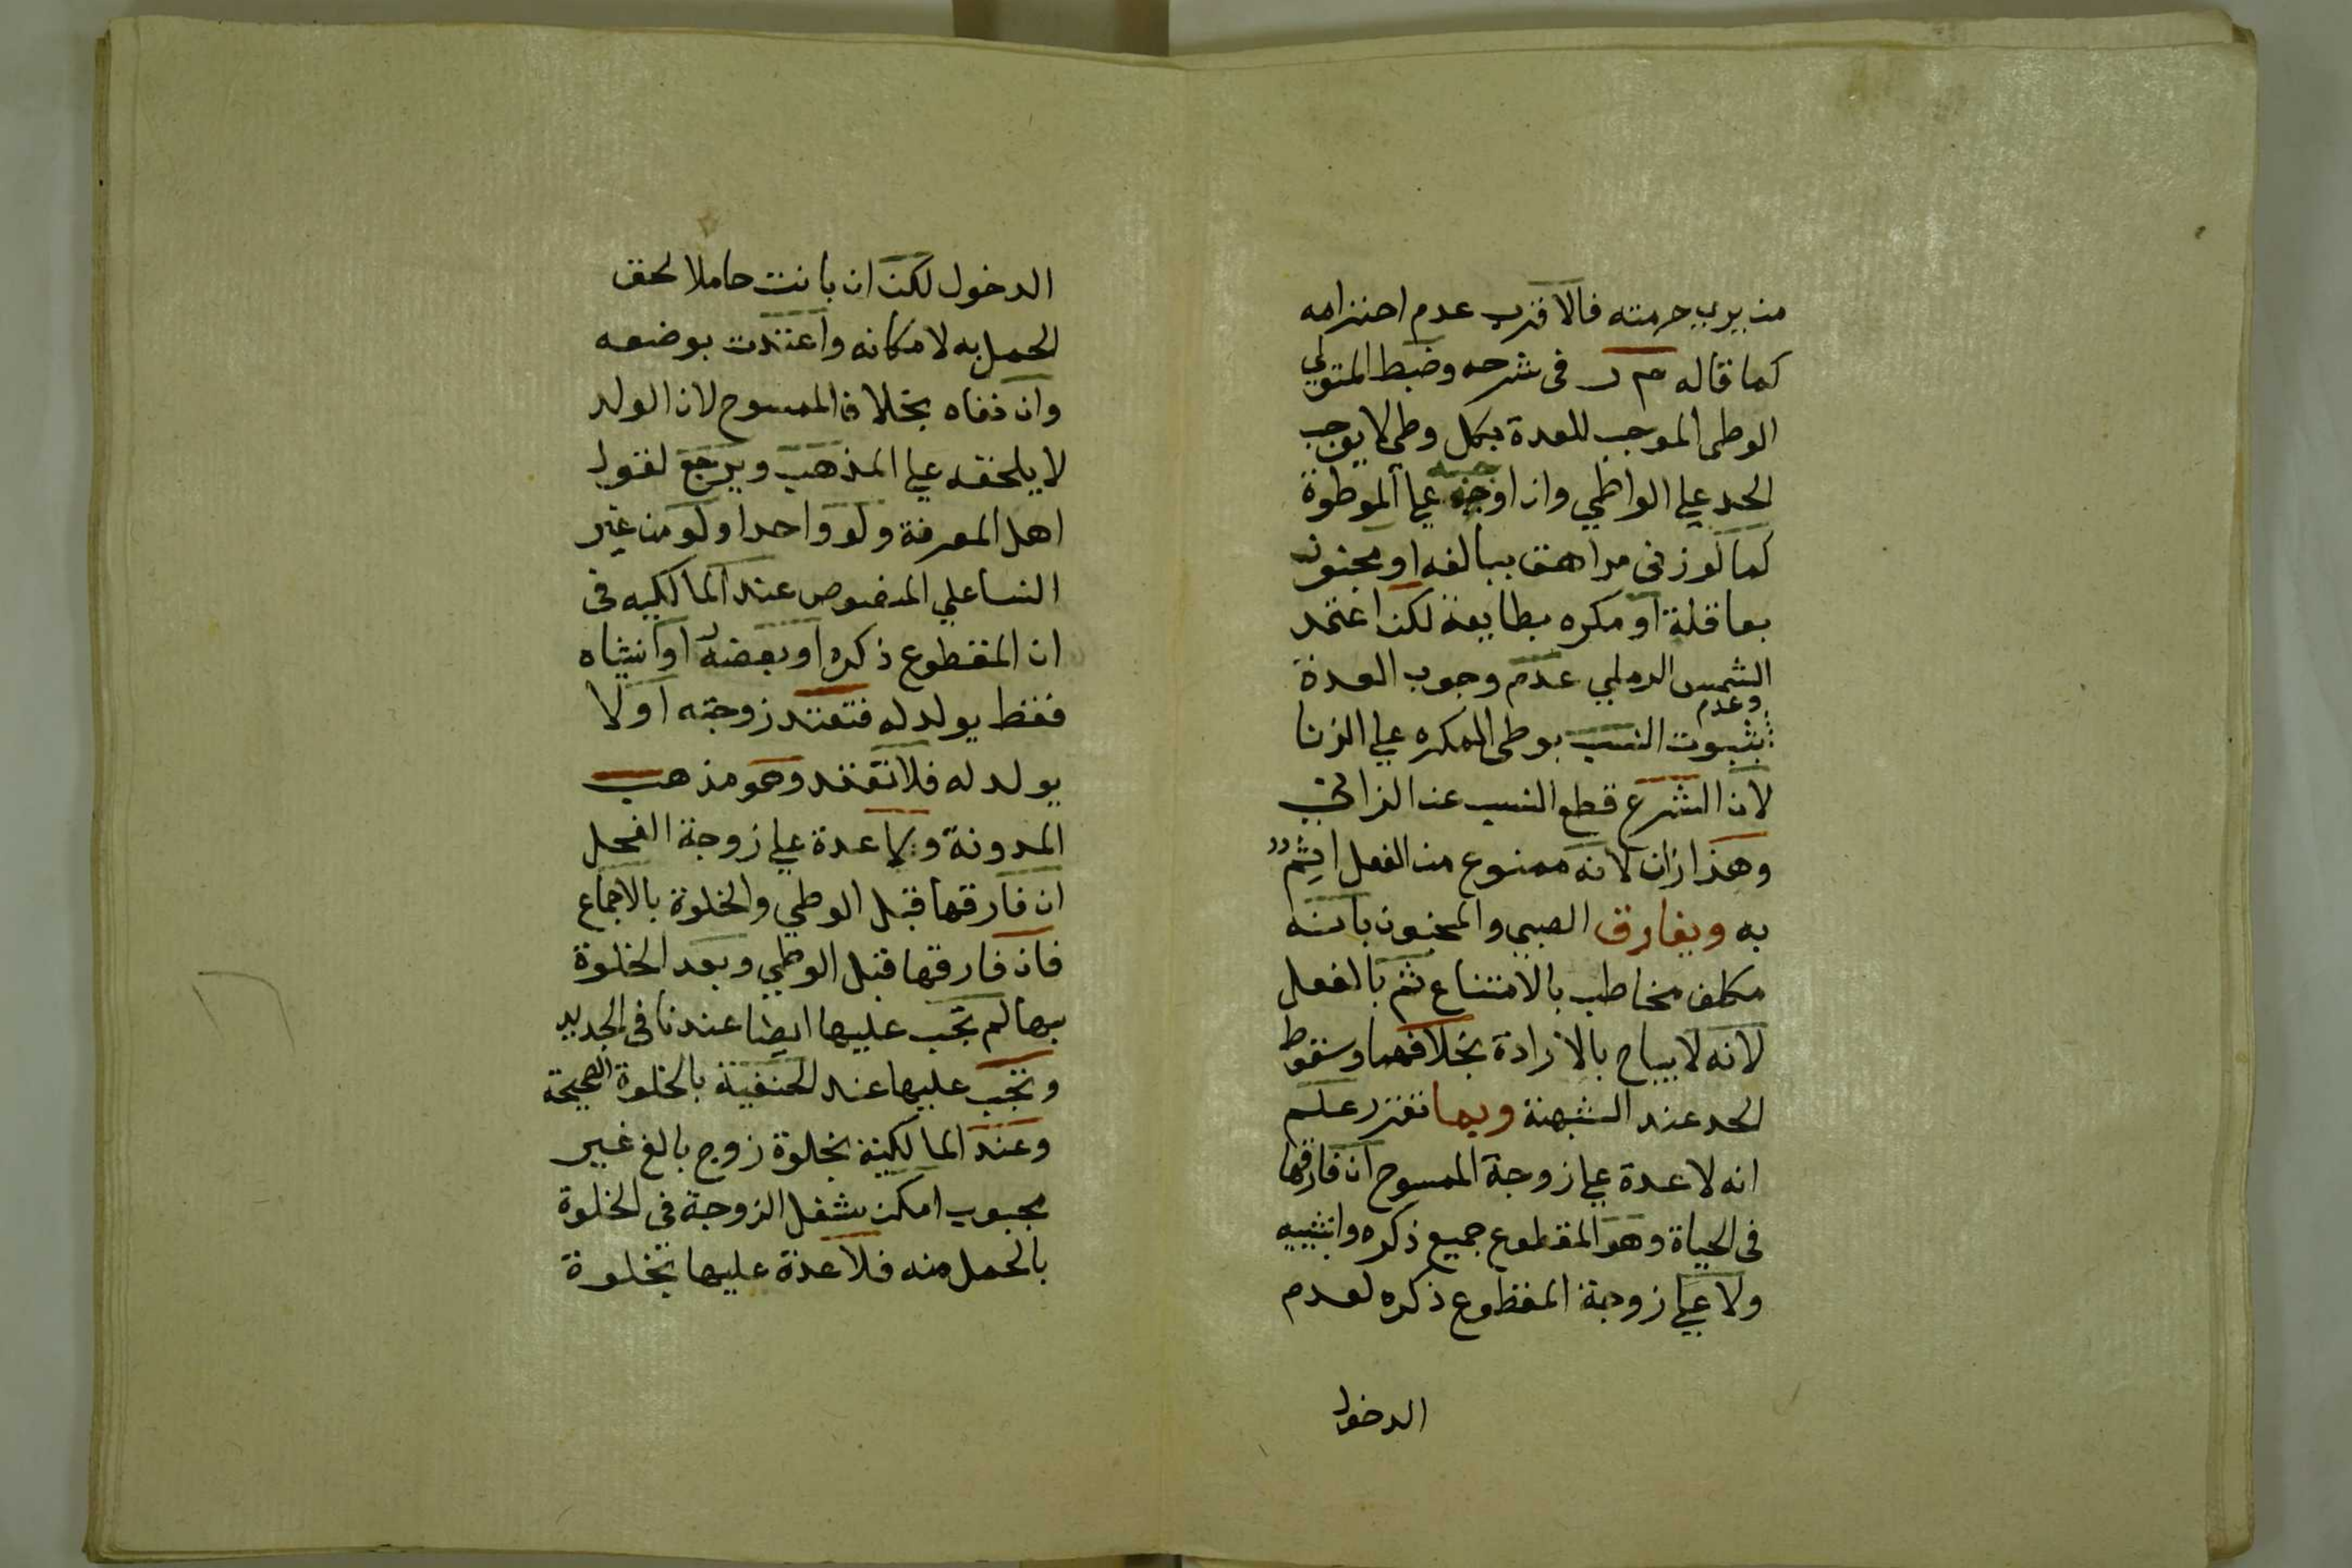 من يري حرمته فالاقرب عدم احترامه
كما قاله م ر في شرحه وضبط المتولي
الوطي الموجب للعدة بكل وطي لا يوجب
الحد علي الواطي وان اوجبه علي الموطوة
كما لو زني مراهق ببالغه او مجنون
بعاقلة او مكره بطايعة لكن اعتمد
الشمس الرملي عدم وجوب العدة
وعدم
ثبوت النسب بوطي المكره علي الزنا
لان الشرع قطع النسب عن الزاني
وهذا زان لانه ممنوع من الفعل اثم
به ويفارق الصبي والمجنون بانه
مكلف مخاطب بالامتناع ثم بالفعل
لانه لا يباح بالارادة بخلافهما وسقوط
الحد عند الشبهة وبها تقرر علم
انه لا عدة علي زوجة الممسوح ان فارقها
في الحياة وهو المقطوع جميع ذكره وانثييه
ولا علي زوجة المقطوع ذكره لعدم
الدخول
الدخول لكن ان بانت حاملا لحق
الحمل به لامكانه واعتدت بوضعه
وان نفاه بخلاف الممسوح لان الولد
لا يلحقه علي المذهب ويرجع لقول
اهل المعرفة ولو واحدا ولو من غير
النسا علي المنصوص عند المالكيه في
ان المقطوع ذكره او بعضه او انثياه
فقط يولد له فتعتد زوجته او لا
يولد له فلا تعتد وهو مذهب
المدونة ولا عدة علي زوجة الفحل
ان فارقها قبل الوطي والخلوة بالاجماع
فان فارقها قبل الوطي وبعد الخلوة
بها لم تجب عليها ايضا عندنا في الجديد
وتجب عليها عند الحنفية بالخلوة الصحيحة
وعند المالكية بخلوة زوج بالغ غير
مجبوب امكن شغل الزوجة في الخلوة
بالحمل منه فلا عدة عليها بخلوة